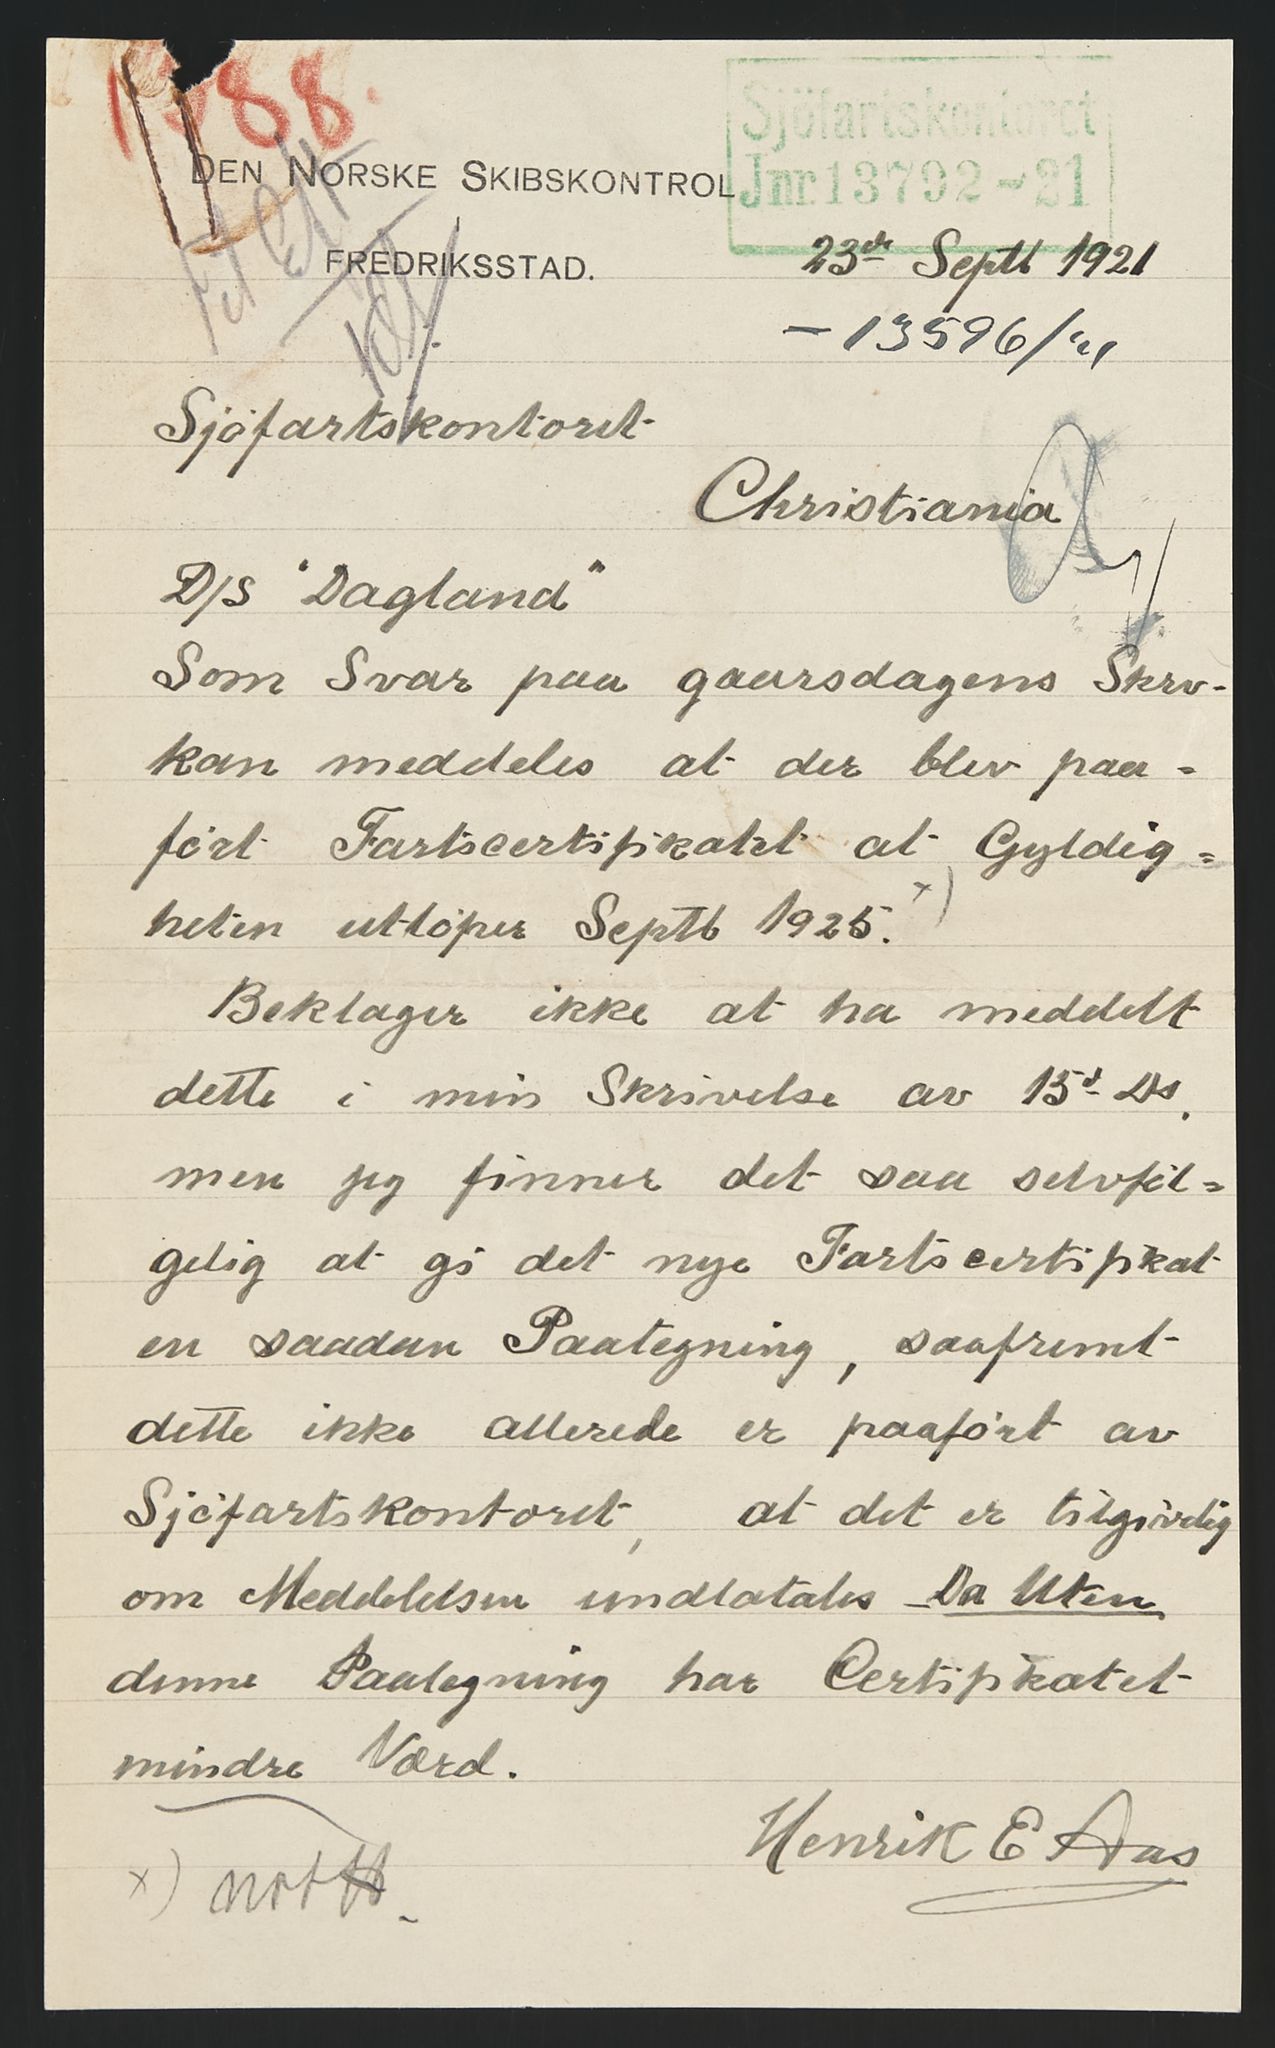 1988.
Sjöfartskontoret
Jnr. 13792-21
DEN NORSKE SKIBSKONTROL
FREDRIKSSTAD.
23de Septb 1921
- 13596/21
Sjöfartskontoret
Christiania
D/S "Dagland"
Som Svar paa gaarsdagens Skrv-
kan meddeles at der blev paa-
ført Fartscertifikatet at Gyldig=
heten utløper Septb 1925. x)
Beklager ikke at ha meddelt
dette i min Skrivelse av 15d Ds.
men jeg finner det saa selvføl=
gelig at gi det nye Fartscertifikat
en saadan Paategning, saafremt
dette ikke allerede er paaført av
Sjöfartskontoret, at det er tilgivelig
om Meddelelsen undlatales Da Uten
denne Paategning har Certifikatet
mindre Værd.
Henrik E Aas
x) notH.